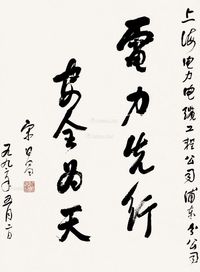 上海电力电缆工程公司浦东分公司
電力先行
安全为天
宋日昌
一九九六年五月二日